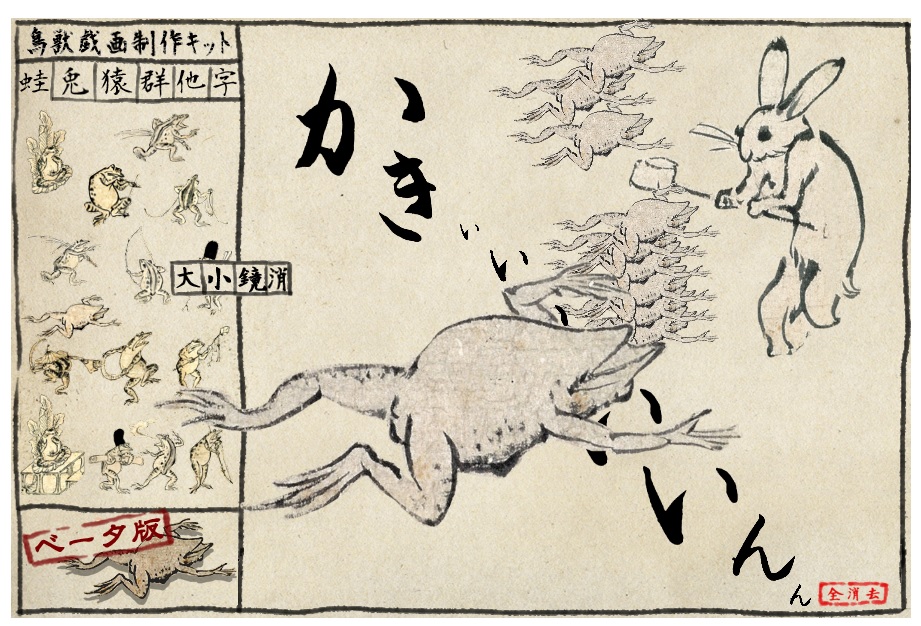 鳥獣戯画制作キット
蛙 兎 猿 群 他 字
大 小 鏡 消
ベータ版
かきぃぃいいいんん
全消去